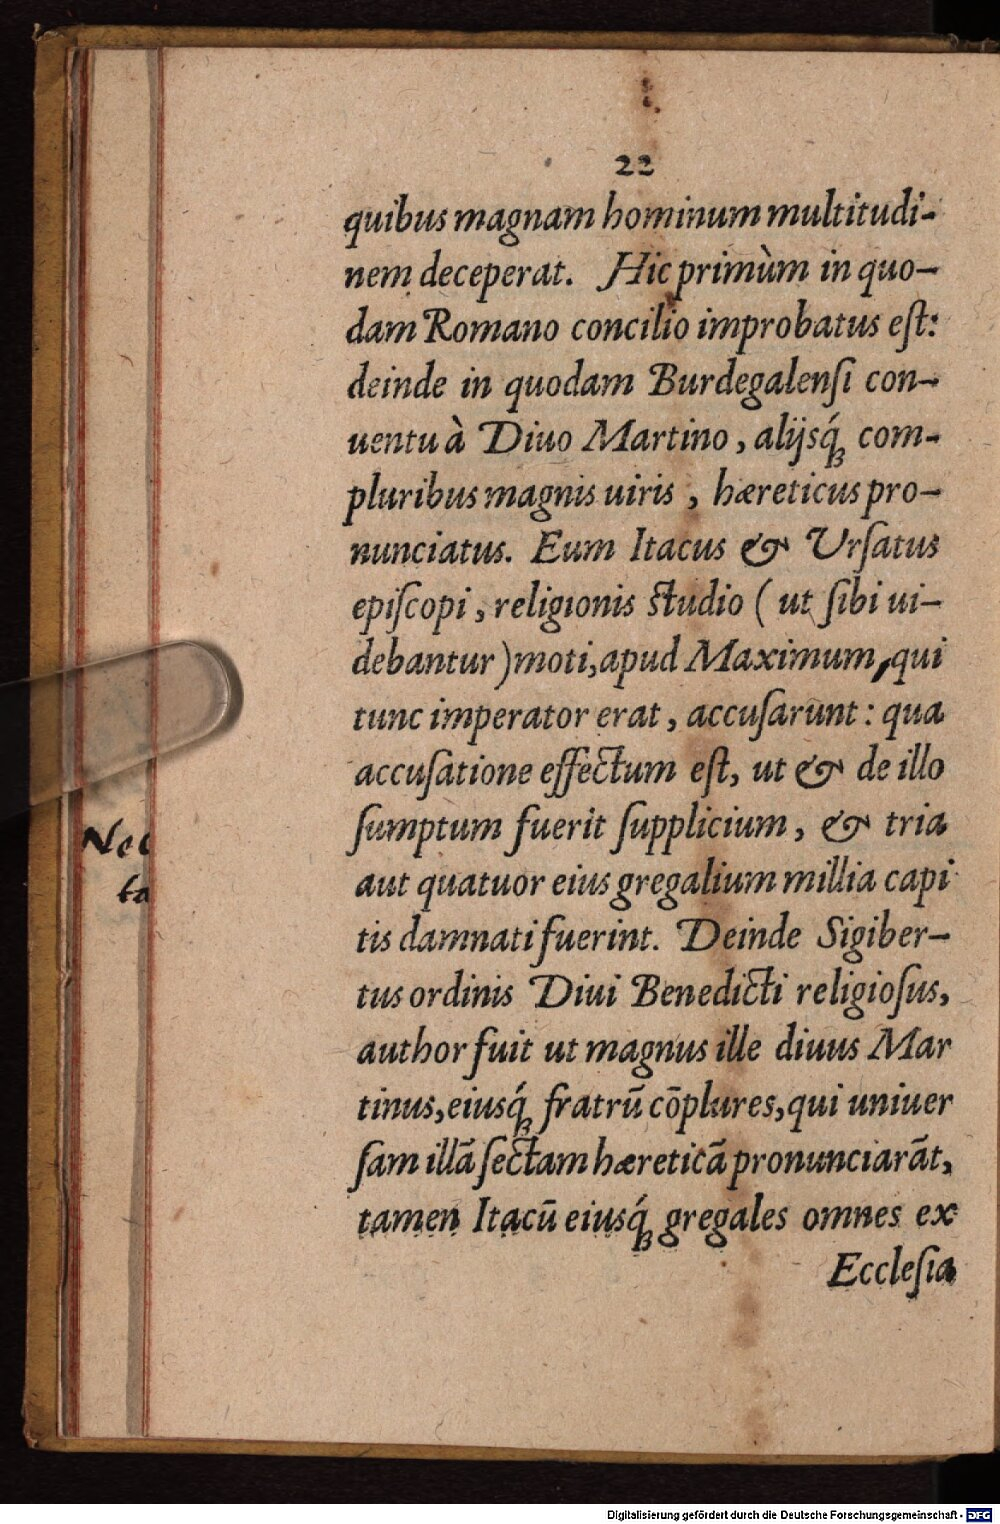 22
quibus magnam hominum multitudi-
nem deceperat. Hic primùm in quo-
dam Romano concilio improbatus eſt:
deinde in quodam Burdegalenſi con-
uentu à Diuo Martino, alijsq́ꝫ com-
pluribus magnis uiris, hæreticus pro-
nunciatus. Eum Itacus & Urſatus
epiſcopi, religionis ſtudio ( ut ſibi ui-
debantur ) moti, apud Maximum, qui
tunc imperator erat, accuſarunt: qua
accuſatione effectum eſt, ut & de illo
ſumptum fuerit ſupplicium, & tria
aut quatuor eius gregalium millia capi
tis damnati fuerint. Deinde Sigiber-
tus ordinis Diui Benedicti religioſus,
author fuit ut magnus ille diuus Mar
tinus, eiusq́ꝫ fratrū cōplures, qui uniuer
ſam illā ſectam hæreticā pronunciarāt,
tamen Itacū eiusq́ꝫ gregales omnes ex
Eccleſia
ta
Digitalisierung gefördert durch die Deutsche Forschungsgemeinschaft - DFG